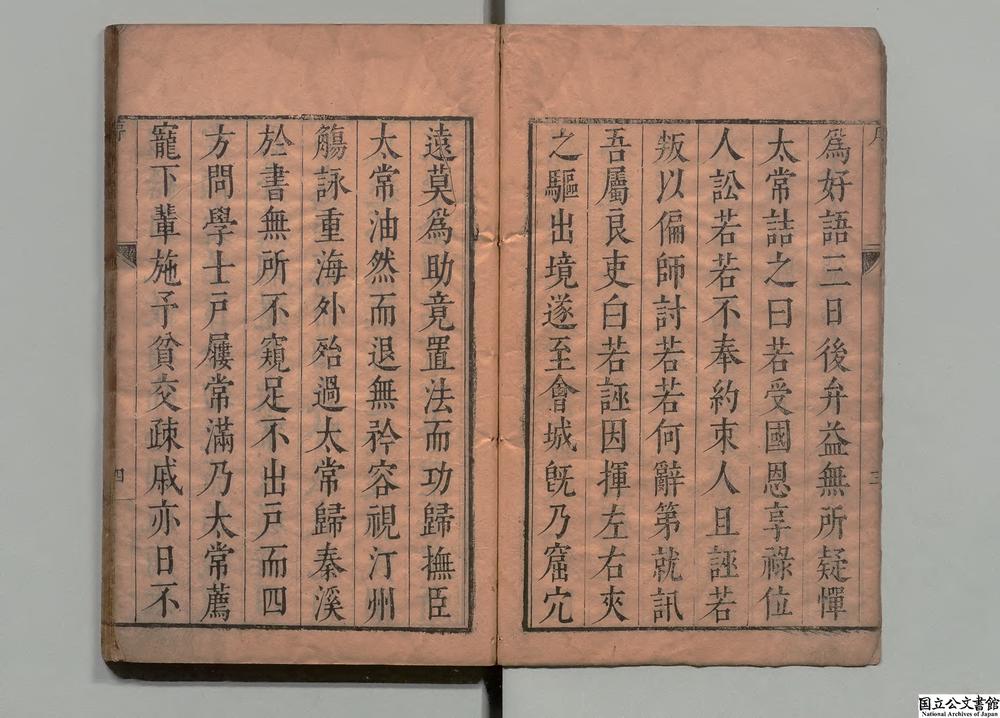 爲好語三日後弁益無所疑憚
太常詰之曰若受國恩享祿位
人訟若若不奉約束人且誣若
叛以偏師討若若何辭第就訊
吾屬良吏白若誣因揮左右夾
之驅出境遂至會城旣乃窟穴
三
遠莫爲助竟置法而功歸撫臣
太常油然而退無矜容視汀州
觴詠重海外殆過太常歸秦溪
於書無所不窺足不出戸而四
方問學士戸屨常滿乃太常薦
寵下輩施予貧交疎戚亦日不
序
四
国立公文書館
National Archives of Japan